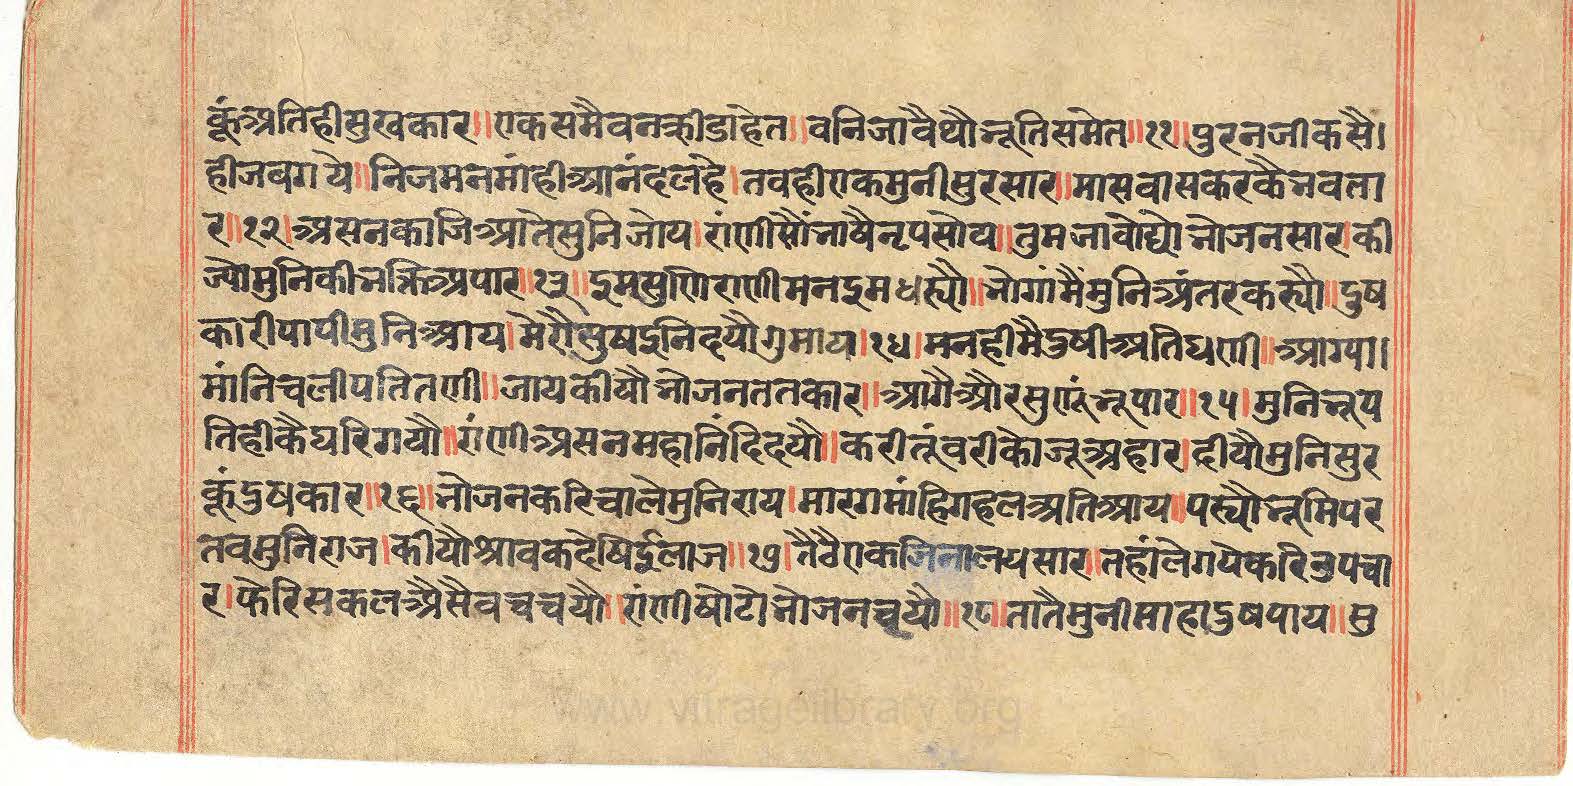 कूंअतिहीसुखकार॥एकसमैवनक्रीडाहेत॥वनिजावैथौभूतिसमेत॥११॥पुरनजीकसै।
हीजबगये॥निजमनमांहीआनंदलहै।तवहीएकमुनीसुरसार॥मासवासकरकैभवता
र॥१२।असनकाजिआतेसुनिजोय।रांणीसौंभाषैनृपसोय॥तुमजावोद्यौभोजनसार।की
ज्योमुनिकीभक्तिअपार॥१३॥इमसुणिराणीमनइमधस्यौ॥भोगांमैंमुनिअंतरकस्यौ॥दुष
कारीपापीमुनिआय।मेरौसुषइनिदयौगुमाय।१४।मनहीमैदुषीअतिघणी॥आग्या।
मांनिचलीपतितणी॥जायकीयौभोजनततकार॥आगैऔरसुणूंभूपार॥१५।मुनिभूप
तिहीकैघरिगयौ॥रांणीअसनमहानिंदिदयौ॥करीतूंवरीकोजूअहार।दीयौमुनिसुर
कूंदुषकार॥१६॥भोजनकरिचालेमुनिराय।मारगमांहिगहलअतिआय॥पस्यौभूमिपर
तवमुनिराज।कीयौश्रावकदेषिईलाज॥१७।तैठैएकजिनालयसार॥तहांलेगयेकरिउपचा
र।फेरिसकलऔसैवचचयौ॥रांणीषोटोभोजनद्यौ॥१८॥तातैमुनीमाहादुषपाय॥मु
www.vitragelibrary.org